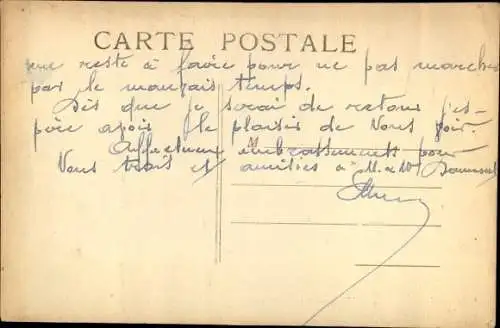 CARTE POSTALE
me reste à faire pour ne pas marcher
par le mauvais temps.
Dès que je serai de retour j'es-
père avoir le plaisir de vous voir.
Affectueux embrassements pour
Vous trois et amitiés à M. & Mme